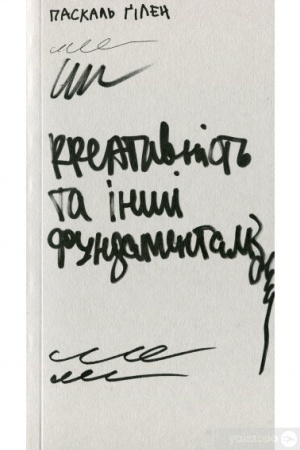 ПАСКАЛЬ ҐІЛЕН
креативність
та інші
фундаменталіз